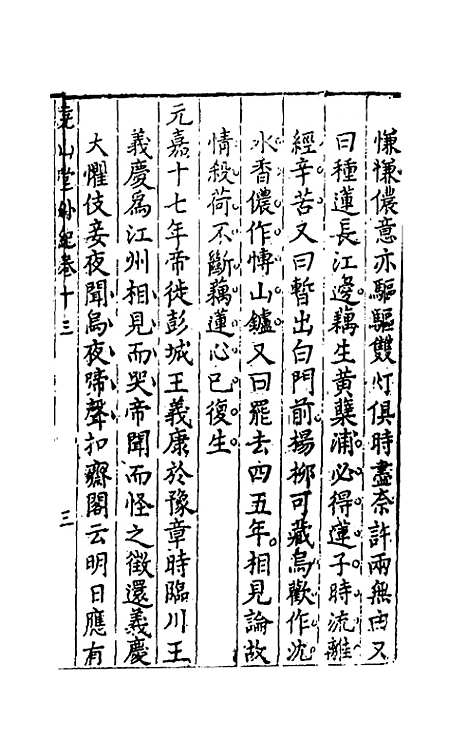 慊慊儂意亦驅驅雙灯俱時盡奈許兩無由又
曰種蓮長江邊藕生黃蘗浦必得蓮子時流離
經辛苦又曰暫出白門前楊柳可藏烏歡作沈
水香儂作博山鑪又曰罷去四五年相見論故
情殺荷不斷藕蓮心已復生
元嘉十七年帝徙彭城王義康於豫章時臨川王
義慶爲江州相見而哭帝聞而怪之徵還義慶
大懼伎妾夜聞烏夜啼聲扣齋閣云明日應有
堯山堂外紀卷十三 三